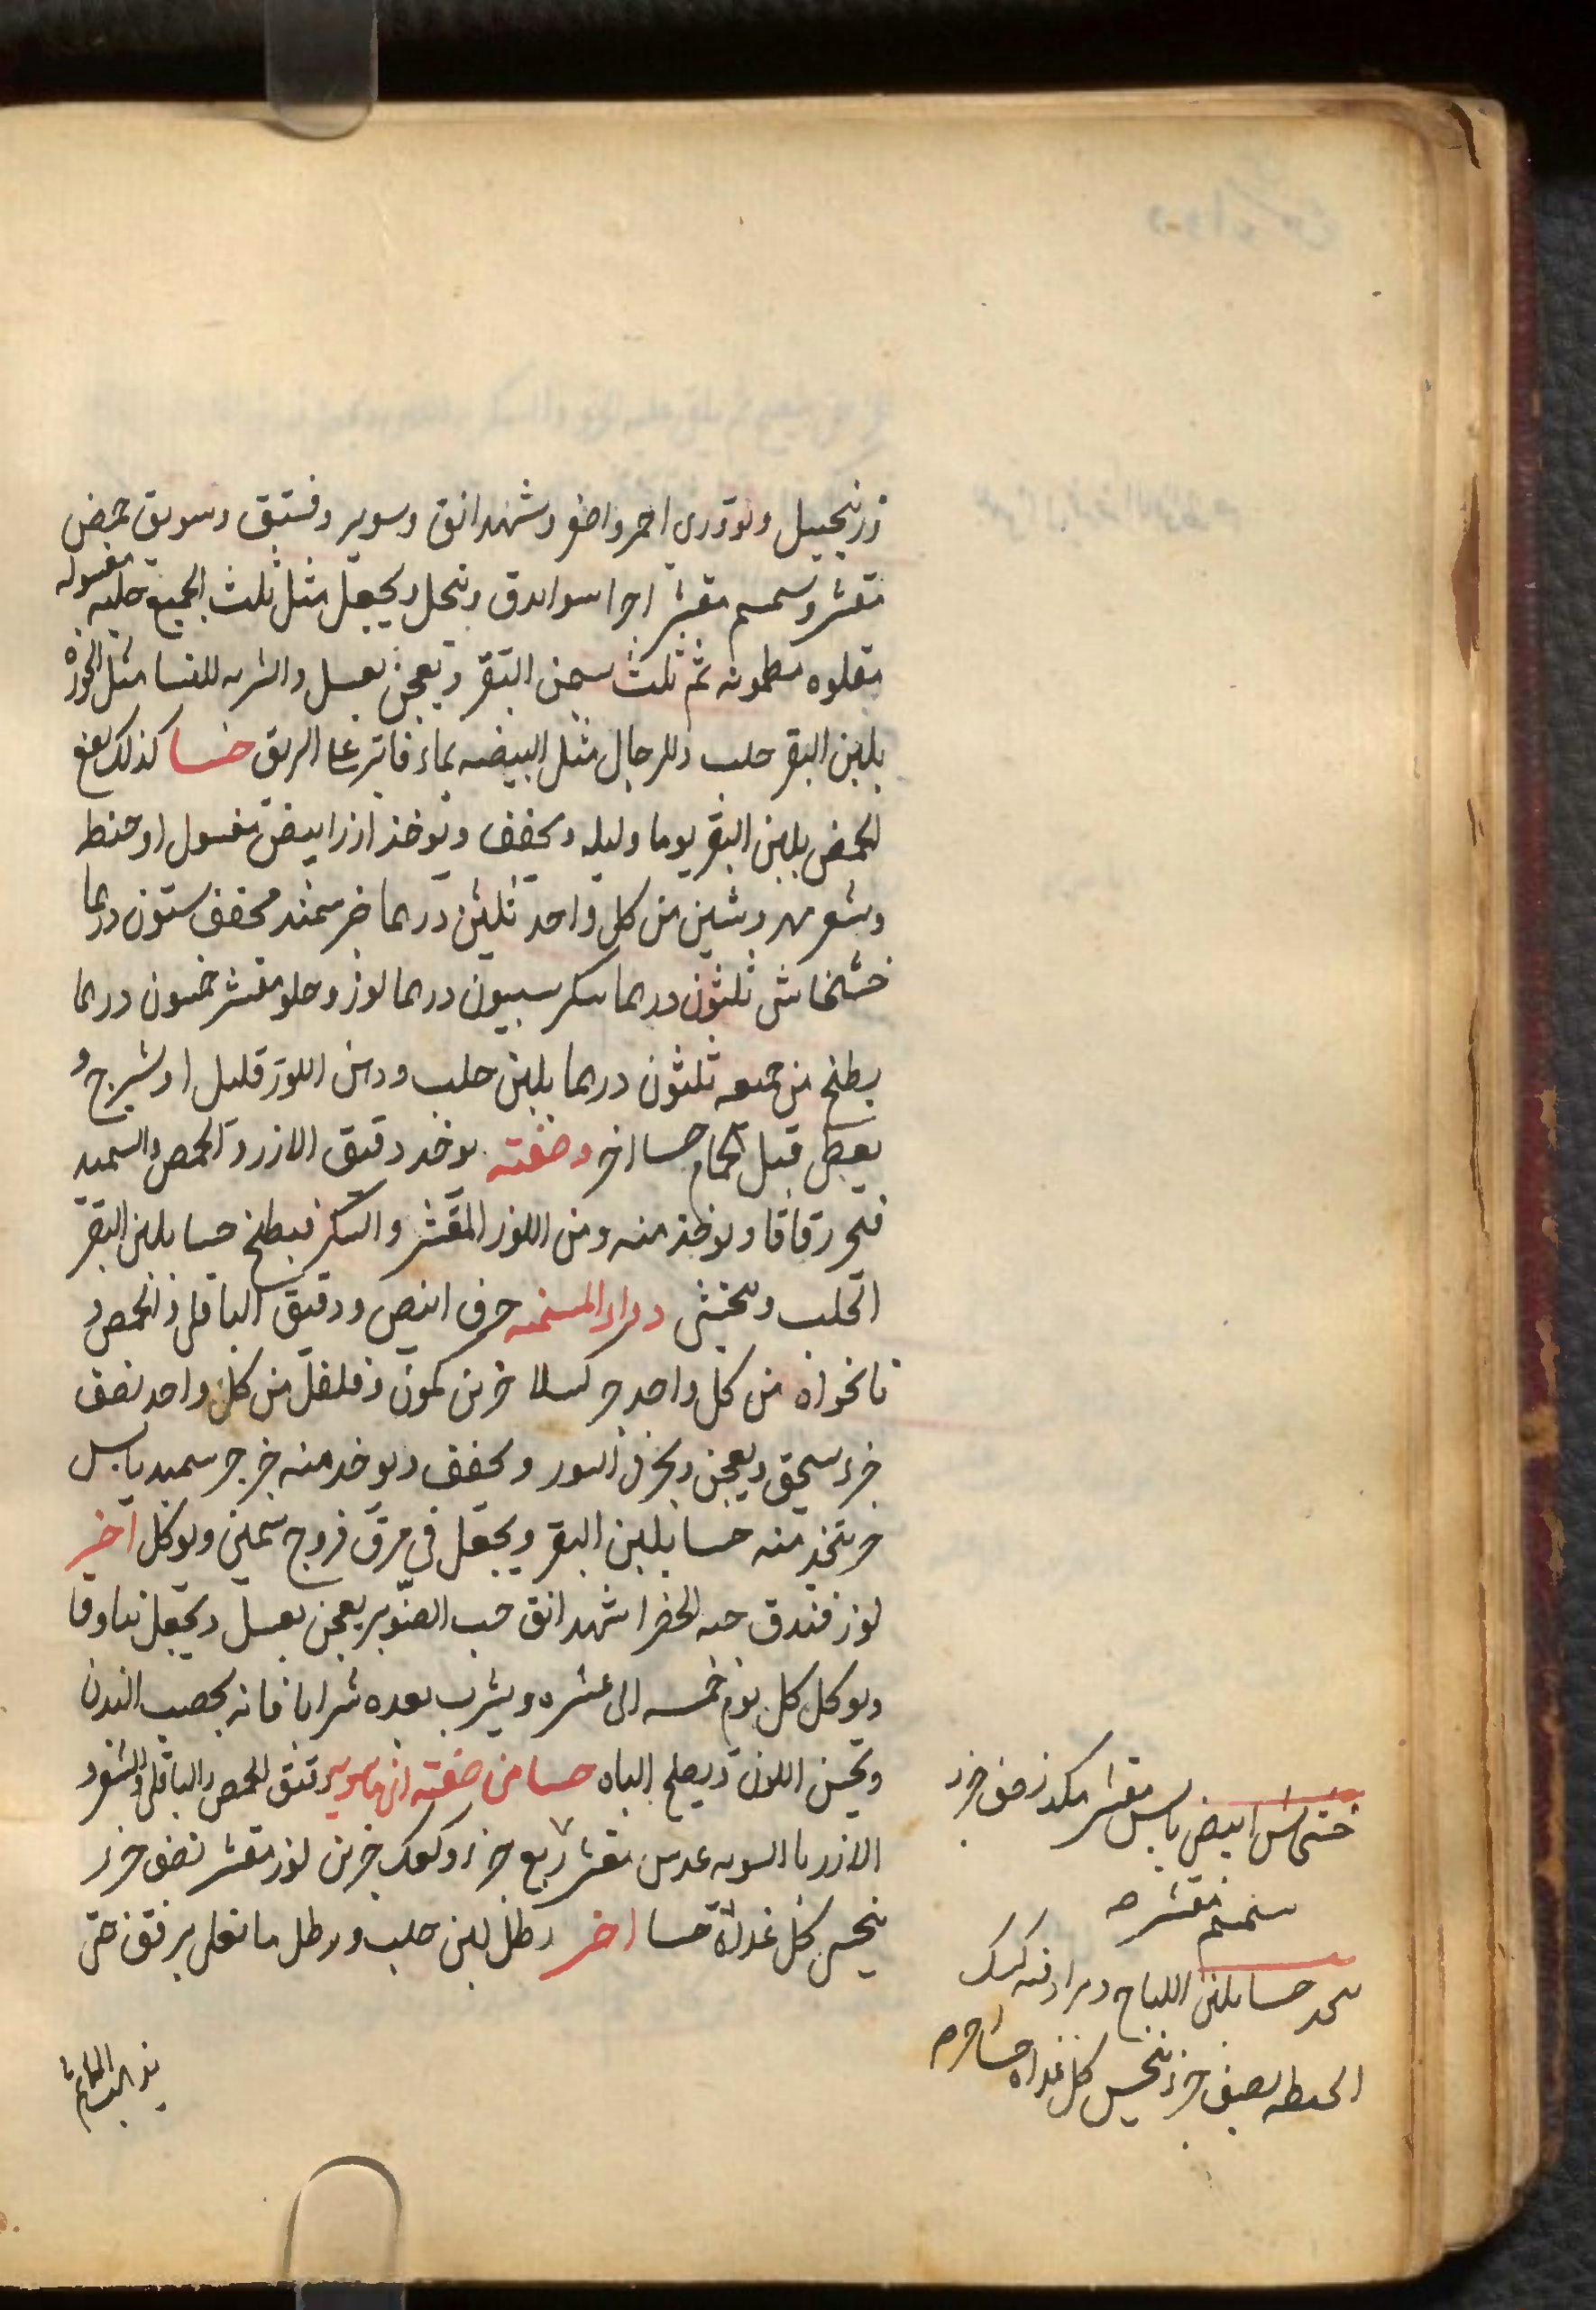 زرنجبيل وتودرى احمر واصفر وشهدانق وسوير وفستق وسويق حمص
مقشر وسمسم مقشر اجزا سوا يدق وينخل ويجعل مثل ثلث الجميع حلبه مغسوله
مقلوه مطحونه ثم ثلث سمن البقر ويعجن بعسل والشربه للنسا مثل الجوزه
بلبن البقر حلب وللرجال مثل البيضه بماء فاتر على الريق حسا كذلك ينقع
الحمص بلبن البقر يوما وليله ويجفف ويوخذ ارز ابيض مغسول او حنطه
وشعير مهروشين من كل واحد ثلثين درهما خبز سمند مجفف ستون درهما
خشخاش ثلثون درهما سكر سبعون درهما لوز وحلو مقشر خمسون درهما
يطبخ من جميعه ثلثون درهما بلبن حلب ودهن اللوز قليل او شيرج و
يعطى قبل الحمام حسا اخر وصفته يوخد دقيق الارز والحمص والسميد
فيخبز رقاقا ويوخذ منه ومن اللوز المقشر والسكر فيطبخ حسا بلبن البقر
الحلب ويتحسى دواء المسمنه حرف ابيض ودقيق الباقلى والحمص و
نانخواه من كل واحد جزء كسلا جزين كمون وفلفل من كل واحد نصف
جزء يسحق ويعجن ويخبز فى التنور ويجفف ويوخد منه جزء سميد يابس
جزء يتخذ منه حسا بلبن البقر ويجعل في مرق فروج سمين ويوكل آخر
لوز فندق حبه الخضرا شهدانق حب الصنوبر يعجن بعسل ويجعل بنادقا
ويوكل كل يوم خمسه الى عشره ويشرب بعده شرابا فانه يخصب البدن
ويحسن اللون ويصلح الباه حسا من صفته دقيق الحمص والباقلى والشعير
الارز بالسويه عدس مقشر ربع جزء وكعك جزين لوز مقشر نصف جزء
يتحسى كل غداة حسا اخر رطل لبن حلب ورطل ما يغلى برفق حتى
خشخاش ابيض يابس مقشر نصف جزء
سمسم مقشر
يتخذ حسا بلبن اللباح ويزاد فيه كشك
الحنطه نصف جزء يتحسى كل غداه
يذهب الماء